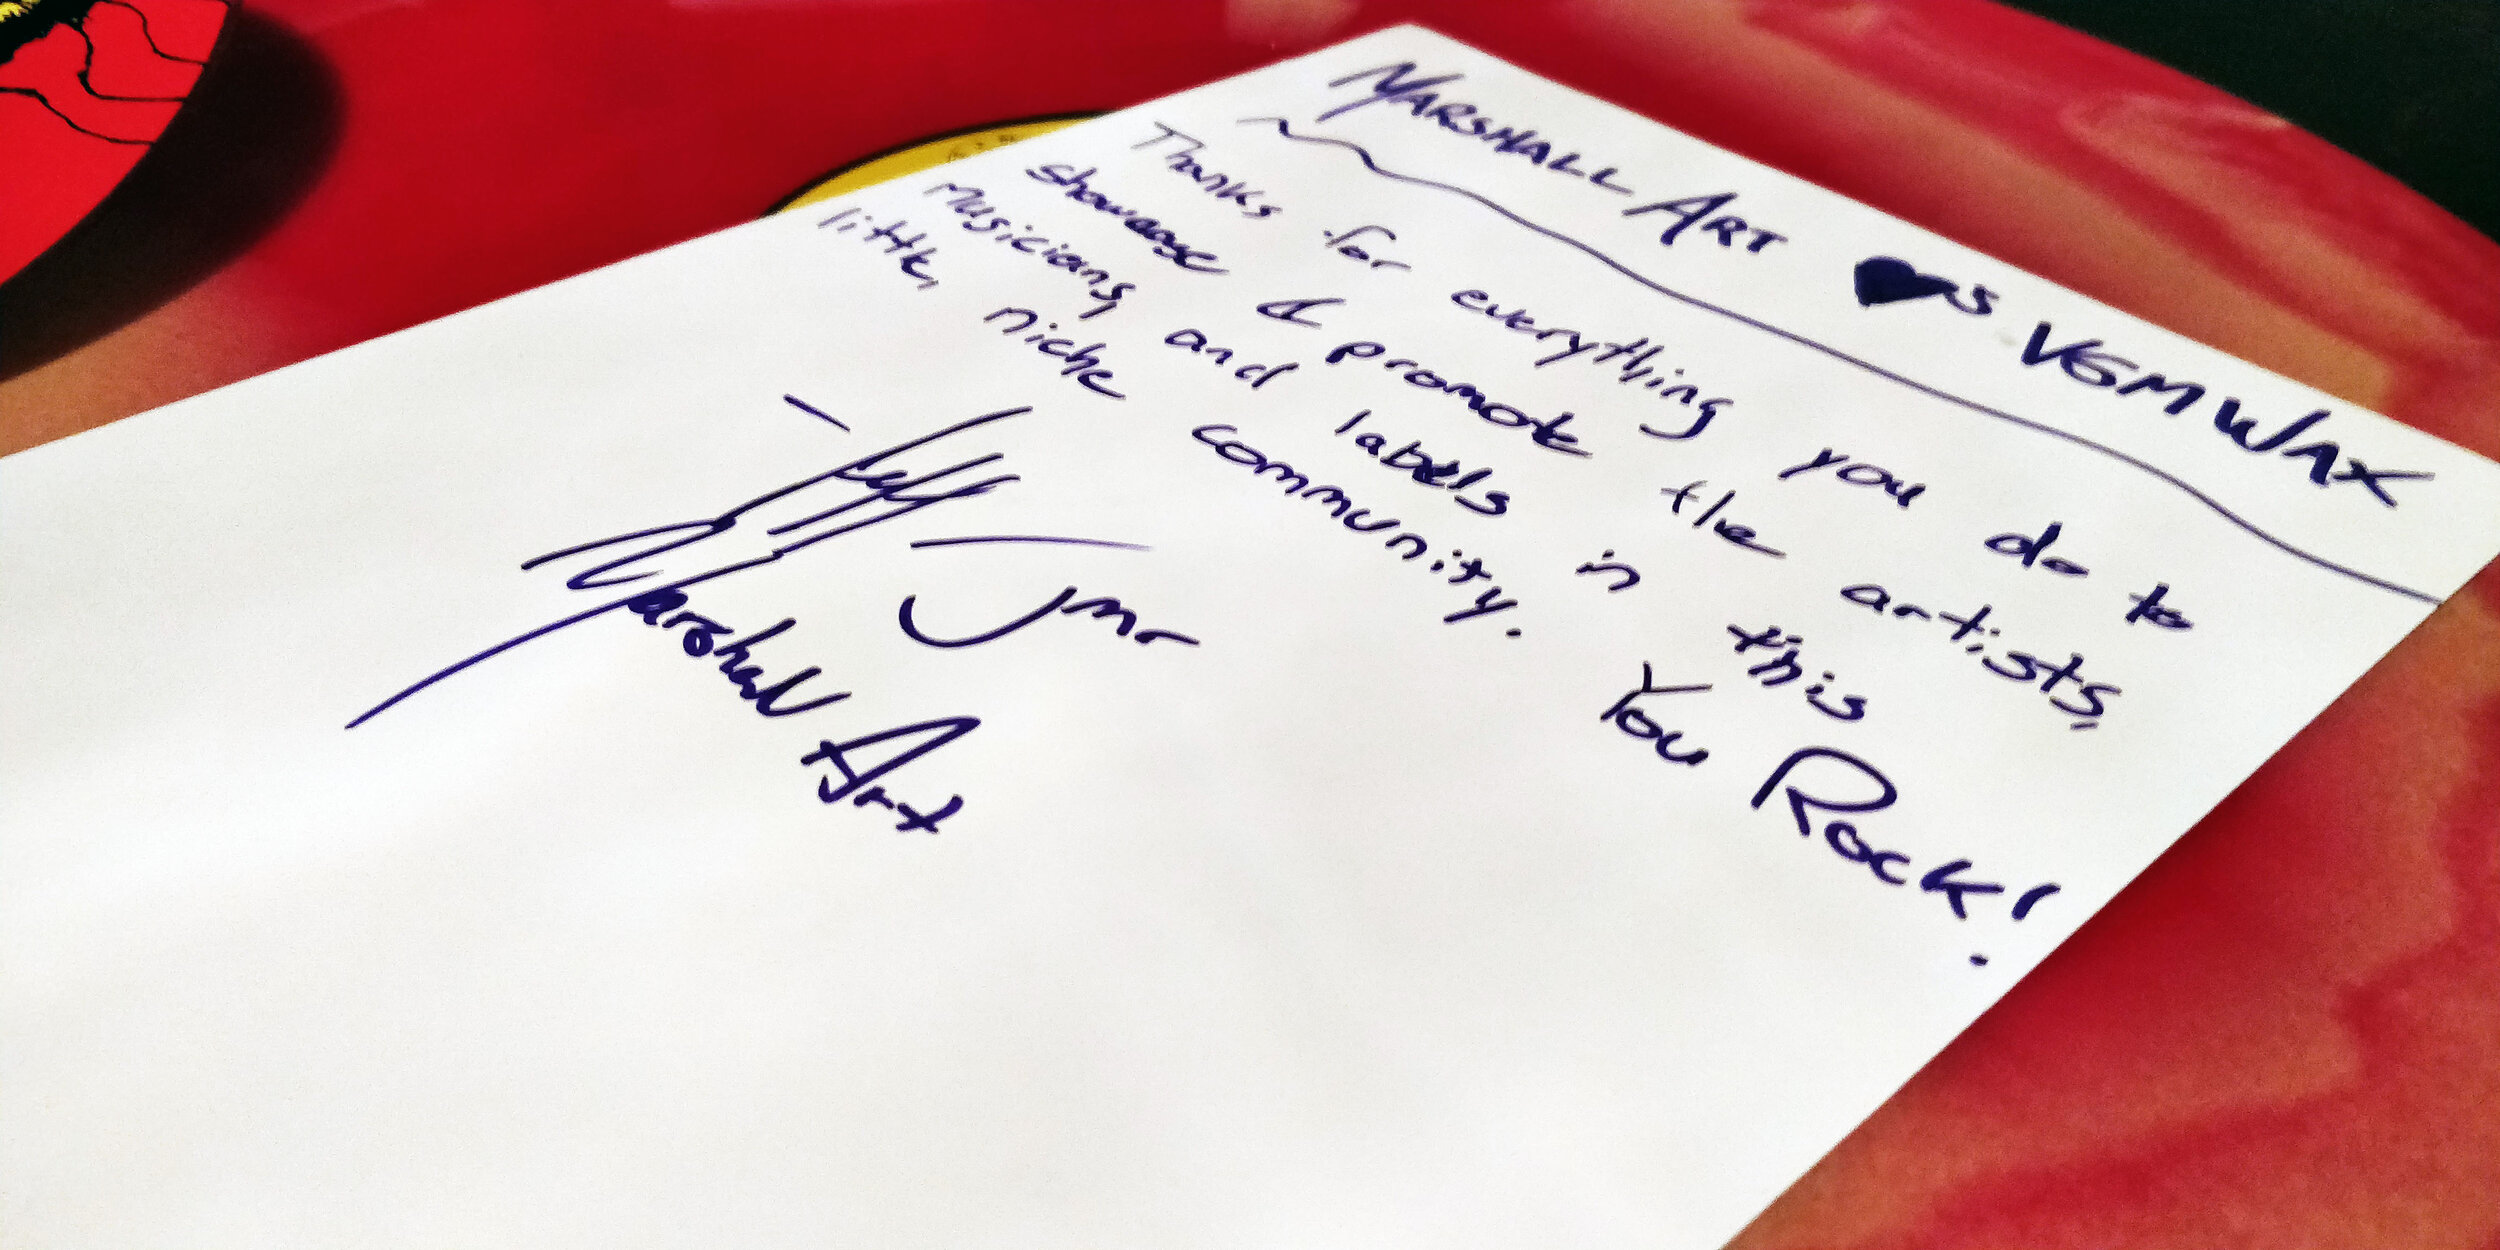 MARSHALL ART ♥s VGM WAX
Thanks for everything you do to
showcase & promote the artists,
musicians, and labels in this
little niche community. You Rock!
Marshall Art